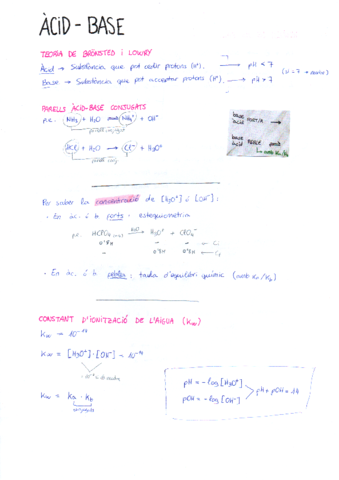 ÀCID - BASE
TEORIA DE BRÖNSTED i LOWRY
Àcid → Substància que pot cedir protons (H⁺), → pH < 7
Base → Substància que pot acceptar protons (H⁺), → pH > 7
(si = 7 → neutre)
PARELLS ÀCID-BASE CONJUGATS
p.e. NH₃ + H₂O → NH₄⁺ + OH⁻
parell conjugat
HCl + H₂O → Cl⁻ + H₃O⁺
parell conj.
base
àcid FORT/A →
base
àcid FEBLE
Per saber la concentració de [H₃O⁺] ó [OH⁻] :
- En àc. ó b. forts : estequiometria
p.e. HClO₄ + H₂O → H₃O⁺ + ClO₄⁻
0'5M - - Ci
- 0'5M 0'5M Cf
- En àc. ó b. febles : taula d'equilibri químic (amb Ka/Kb)
CONSTANT D'IONITZACIÓ DE L'AIGUA (Kw)
Kw → 10⁻¹⁴
Kw = [H₃O⁺]·[OH⁻] = 10⁻¹⁴
Kw = Ka · Kb
conjugats
pH = -log [H₃O⁺]
pOH = -log [OH⁻]
pH + pOH = 14